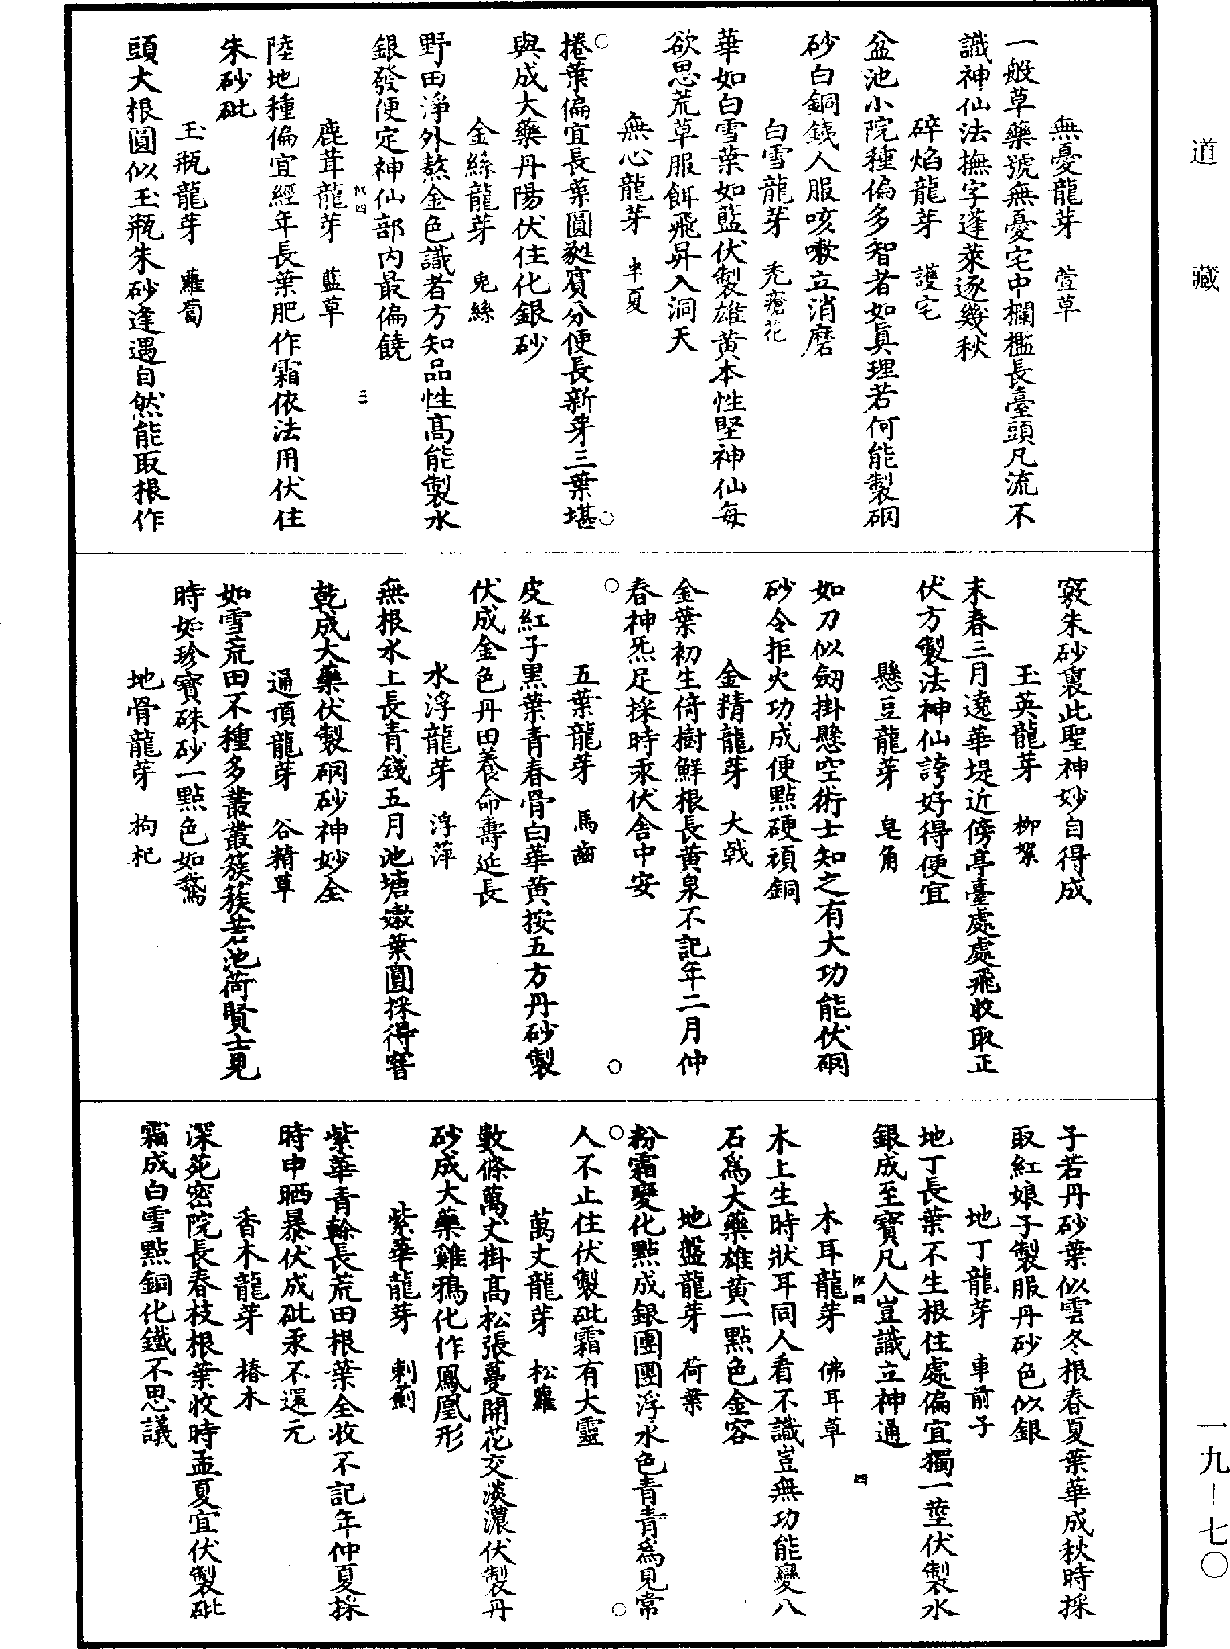 道藏
無憂龍芽 萱草
一般草藥號無憂宅中欄檻長臺頭凡流不
識神仙法撫字蓬萊逐幾秋
碎焰龍芽 護宅
盆池小院種偏多智者如真理若何能製硇
砂白銅錢人服咳嗽立消磨
白雪龍芽 禿瘡花
華如白雪葉如藍伏製雄黃本性堅神仙每
欲思荒草服餌飛昇入洞天
無心龍芽 半夏
捲葉偏宜長葉圓蕤賓分便長新芽三葉堪
與成大藥丹陽伏住化銀砂
金絲龍芽 兔絲
野田淨外熬金色識者方知品性高能製水
銀發便定神仙部內最偏饒
鹿茸龍芽 藍草
三
陸地種偏宜經年長葉肥作霜依法用伏住
朱砂砒
玉瓶龍芽 蘿蔔
頭大根圓似玉瓶朱砂逢遇自然能取根作
竅朱砂裏此聖神妙自得成
玉英龍芽 柳絮
末春三月遶華堤近傍亭臺處處飛收取正
伏方製法神仙誇好得便宜
懸豆龍芽 皂角
如刀似劒掛懸空術士知之有大功能伏硇
砂令拒火功成便點硬頑銅
金精龍芽 大戟
金葉初生倚樹鮮根長黃泉不記年二月仲
春神炁足採時汞伏舍中安
五葉龍芽 馬齒
皮紅子黑葉青春骨白華黃按五方丹砂製
伏成金色丹田養命壽延長
水浮龍芽 浮萍
無根水上長青錢五月池塘嫩葉圓採得窨
乾成大藥伏製硇砂神妙全
通頂龍芽 谷精草
如雪荒田不種多叢叢簇簇若池荷賢士見
時如珍寶硃砂一點色如鵞
地骨龍芽 枸杞
子若丹砂葉似雲冬根春夏葉華成秋時採
取紅娘子製服丹砂色似銀
地丁龍芽 車前子
地丁長葉不生根住處偏宜獨一莖伏製水
銀成至寶凡人豈識立神通
木耳龍芽 佛耳草
四
木上生時狀耳同人看不識豈無功能變八
石爲大藥雄黃一點色金容
地盤龍芽 荷葉
粉霜變化點成銀團團浮水色青青爲見常
人不止住伏製砒霜有大靈
萬丈龍芽 松蘿
數條萬丈掛高松張蔓開花交淡濃伏製丹
砂成大藥雞鴉化作鳳凰形
紫華龍芽 刺薊
紫華青榦長荒田根葉全收不記年仲夏採
時申晒暴伏成砒汞不還元
香木龍芽 椿木
深苑密院長春枝根葉收時孟夏宜伏製砒
霜成白雪點銅化鐵不思議
一九—七〇